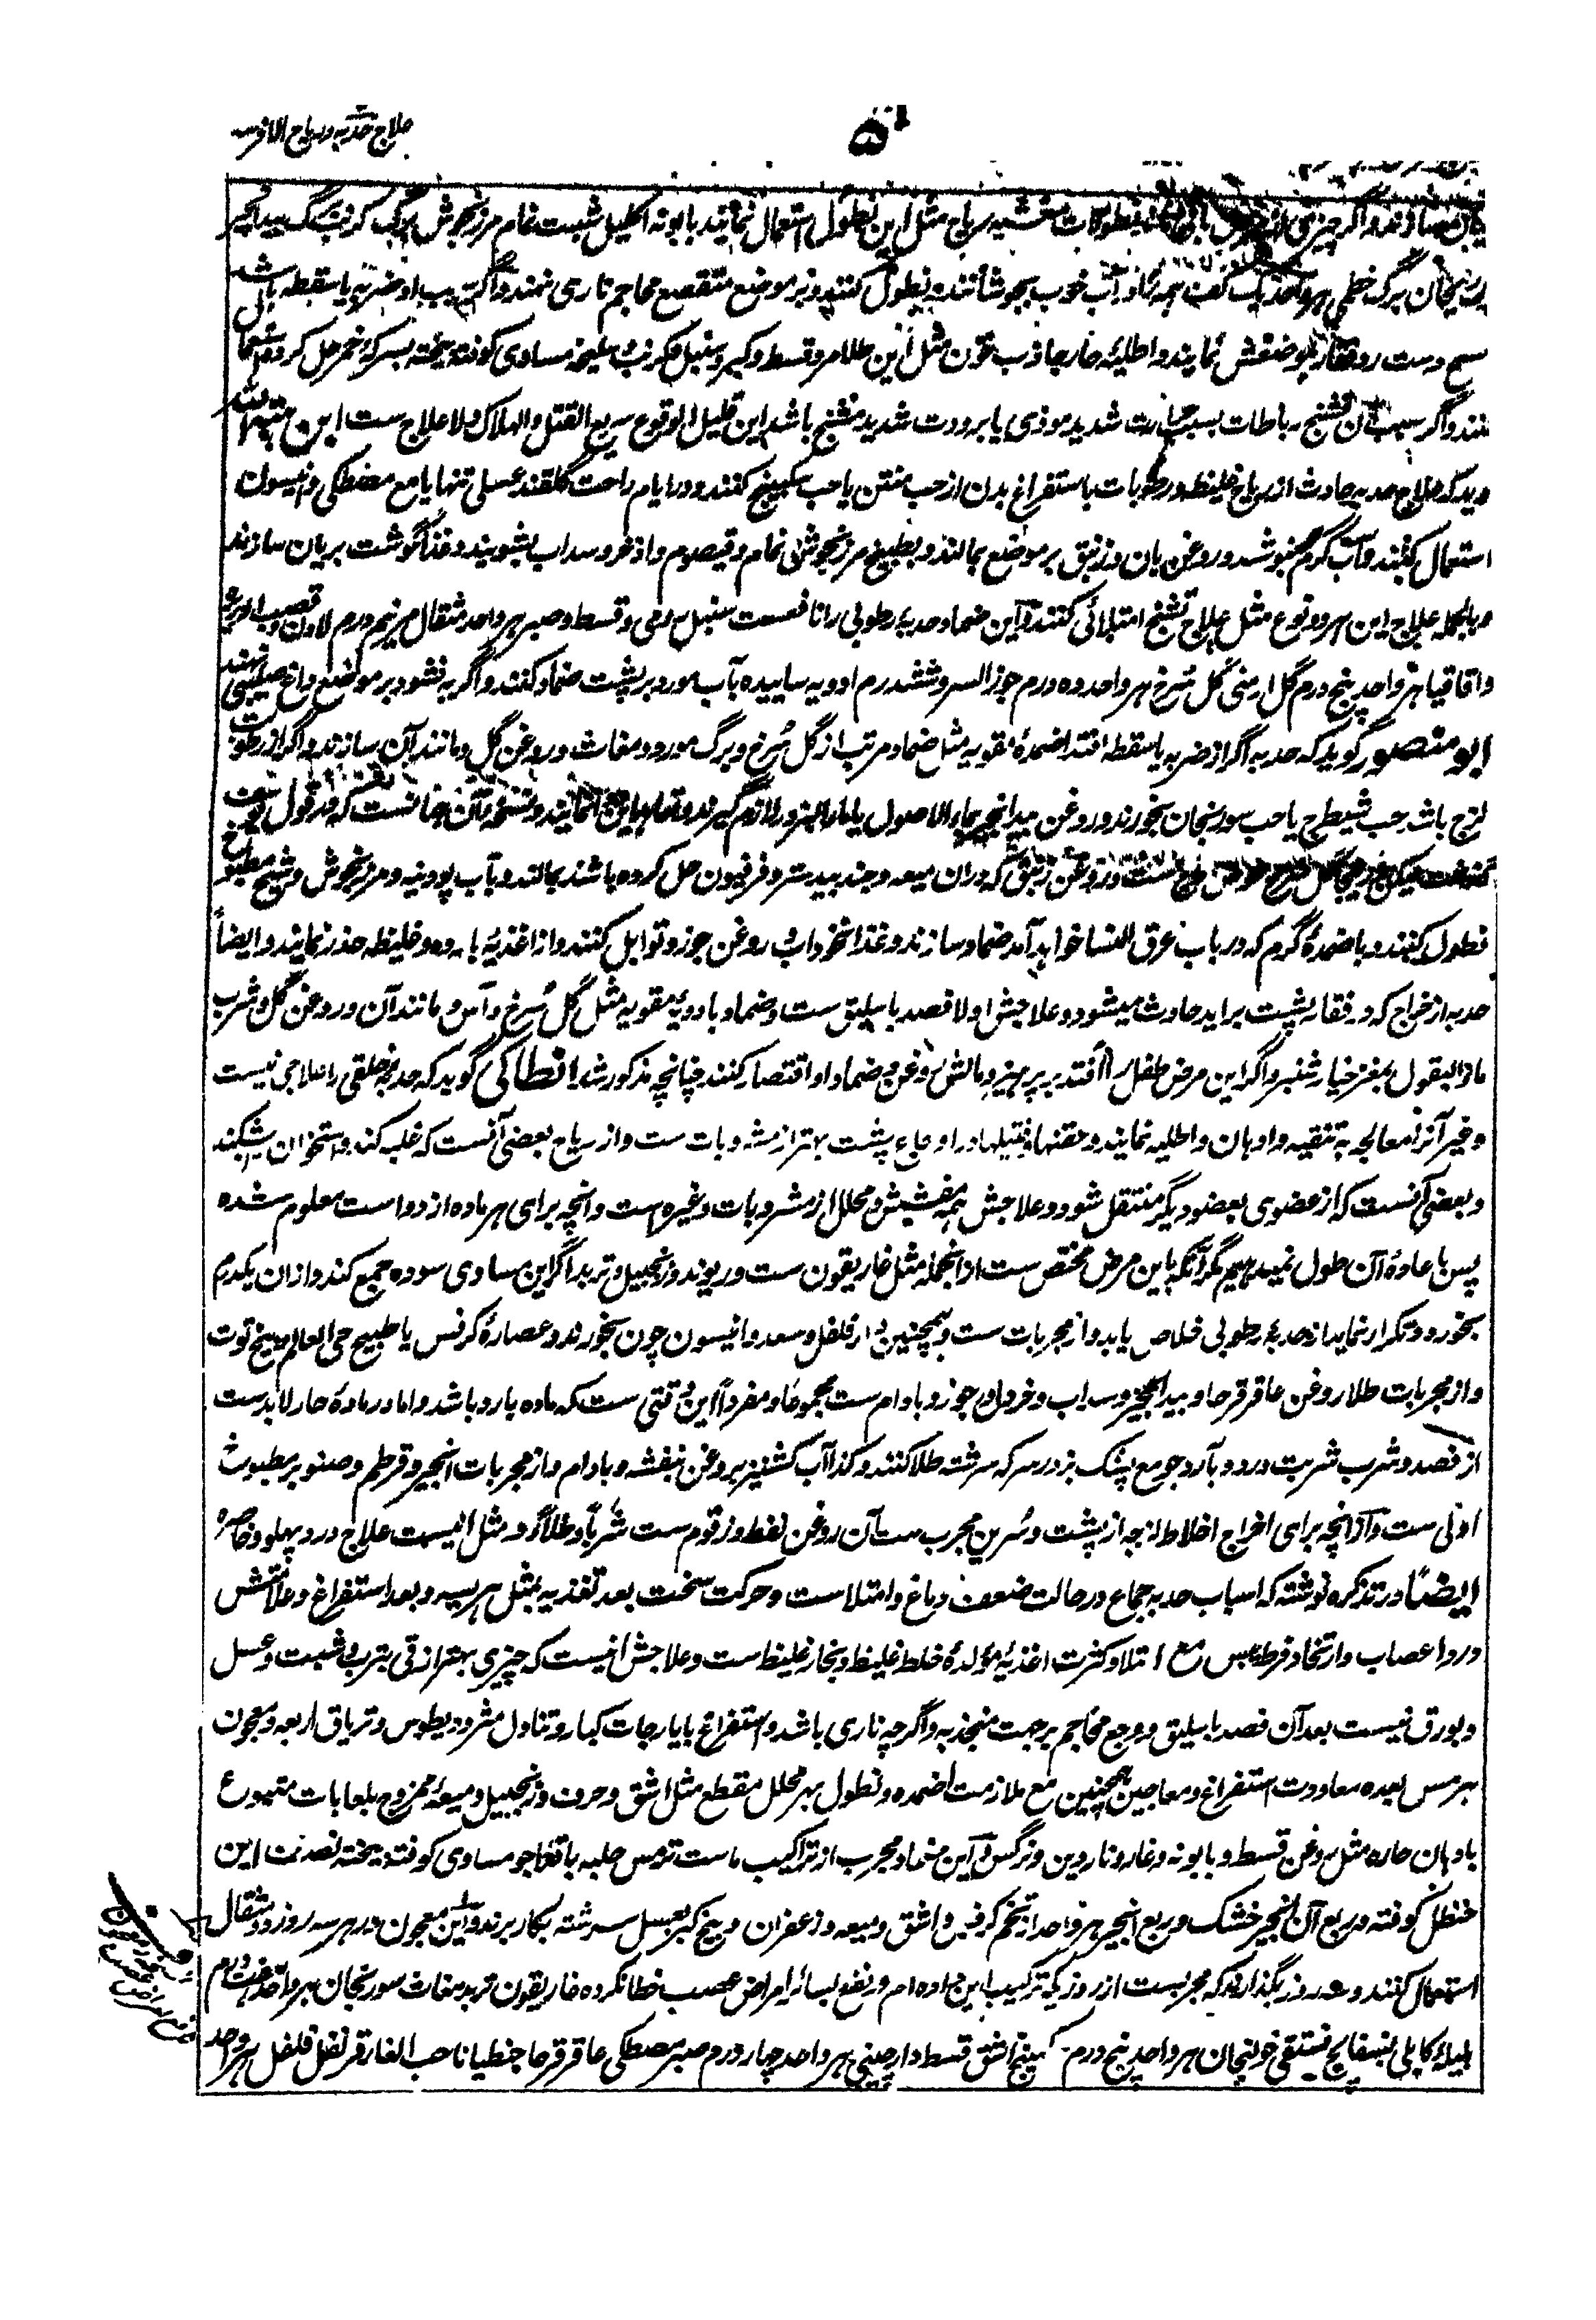 علاج حدبه و ریاح الافرسه
سازند و اگر چیزی نطولات مفششه ریاح مثل این نطول استعمال نمایند بابونه اکلیل شبت نمام مرزنجوش برگ کرنب برگ بیدانجیر
برگ خطمی هر واحد یک کف همه را در آب خوب بجوشانند و نطول کنند و بر موضع متقصع محاجم ناری نهند و اگر بسبب او ضربه یا سقطه باشد
دست رد فقار بموضعش نمایند و اطلیهٔ حار جاذب چون مثل این طلا مر و قسط و سنبل و سلیخه مساوی کوفته بیخته بسرکهٔ خمر حل کرده
کنند و اگر سبب آن تشنج رباطات بسبب حرارت شدید موذی یا برودت شدید مشنج باشد این قلیل الوقوع سریع القتل والهلاک و لا علاج ست
گوید که علاج حدبه حادث از ریاح غلیظه و رطوبات باستفراغ بدن از حب منتن یا حب سکبینج کنند و در ایام راحت گلقند عسلی تنها یا مع مصطکی و انیسون
استعمال کنند و آب گرم بنوشند و روغن بان و زنبق بر موضع بمالند و بطبیخ مرزنجوش نمام و قیصوم و اذخر و سداب بشویند و غذا گوشت بریان سازند
و بالجمله علاج این هر دو نوع مثل علاج تشنج امتلائی کنند و این ضماد حدبهٔ رطوبی را نافعست سنبل رومی و قسط و صبر هر واحد مثقال مر نیم درم لادن قصب الذریره
و اقاقیا هر واحد پنج درم گل ارمنی گل سرخ هر واحد ده درم جوز السرو شش درم ادویه ساییده بآب مورد بر پشت ضماد کنند و اگر به نشود بر موضع داغ صلیبی نهند
ابو منصور گوید که حدبه اگر از ضربه یا سقطه افتد اضمدهٔ مقویه مثل ضماد مرتب از گل سرخ و برگ مورد و مغاث و روغن گل و مانند آن سازند و اگر از رطوبت
لزج باشد حب شیطرج یا حب سورنجان بخورند و روغن بیدانجیر بماء الاصول یا ماء البزور لازم گیرند
و روغن زنبق که دران میعه و جندبیدستر و فرفیون حل کرده باشند بمالند و بآب پودینه و مرزنجوش و شیح مطبوخ
نطول کنند و باضمدهٔ گرم که در باب عرق النسا خواهد آمد ضماد سازند و غذا نخوداب و روغن جوز و توابل کنند و از اغذیهٔ بارده و غلیظه حذر نمایند و ایضاً
حدبه از خراج که در فقار پشت براید حادث میشود و علاجش اولا فصد باسلیق ست و ضماد بادویهٔ مقویه مثل گل سرخ و آس و مانند آن و روغن گل و شرب
ماء البقول بمغز خیارشنبر و اگر این مرض طفل را افتد بر پرهیز و مالش روغن و ضماد او اقتصار کنند چنانچه مذکور شد انطاکی گوید که حدبهٔ خلقی را علاجی نیست
و غیر آنرا معالجه به تنقیه و ادهان و اطلیه نمایند و حقنها و فتیلها در اوجاع پشت بهتر از مشروبات ست و از ریاح بعضی آنست که غلبه کند و استخوان بشکند
و بعضی آنست که از عضوی بعضو دیگر منتقل شود و علاجش همه مفشش و محلل از مشروبات و غیره است و انچه برای هر ماده از دوا است معلوم شده
پس باعادهٔ آن طول نمیدهیم مگر آنکه باین مرض مختص ست ازانجمله مثل غاریقون ست و ریوند و زنجبیل و تربد اگر این مساوی سوده جمع کنند و ازان یکدرم
بخورد و تکرار نماید از حدبهٔ رطوبی خلاص یابد و از مجربات ست و همچنین دارفلفل و سعد و انیسون چون بخورند و عصارهٔ کرفس یا طبیخ حی العالم و بیخ توت
و از مجربات طلا روغن عاقرقرحا و بیدانجیر و سداب و خردل و جوز و بادام ست مجموعا و مفرداً این وقتی ست که ماده بارد باشد و اما در مادهٔ حار لابدست
از فصد و شرب شربت ورد و بآرد جو مع پشک بز در سرکه سرشته طلا کنند و کذا آب کشنیز بروغن بنفشه و بادام و از مجربات انجیر و قرطم و صنوبر مطبوخ
اولی ست و از انچه برای اخراج اخلاط لزجه از پشت و سرین مجرب ست آن روغن نفط و زقوم ست شرباً و طلاءً و مثل اینست علاج درد پهلو و خاصره
ایضاً در تذکره نوشته که اسباب حدبه جماع در حالت ضعف دماغ و امتلاست و حرکت سخت بعد تغذیه بمثل هریسه و بعد استفراغ و علامتش
درد اعصاب و ارتخا و فرط یبس مع امتلا و کثرت اغذیهٔ مولدهٔ خلط غلیظ و بخار غلیظ ست و علاجش انیست که چیزی بهتر از قی بترب و شبت و عسل
و بورق نیست بعد آن فصد باسلیق و وضع محاجم بر جهت منجذبه و اگرچه ناری باشد و استفراغ بایارجات کبار و تناول مثرودیطوس و تریاق اربعه و معجون
هرمس بعده معاودت استفراغ و معاجین همچنین مع ملازمت اضمده و نطول بهر محلل مقطع مثل اشق و حرف و زنجبیل و میعه ممزوج بلعابات متبوع
بادهان حاره مثل روغن قسط و بابونه و غار و ناردین و نرگس و این ضماد مجرب از تراکیب ماست ترمس حلبه باقلا جو مساوی کوفته بیخته نصفت این
حنظل کوفته و ربع آن انجیر خشک و ربع انجیر هر واحد از تخم کرفس و اشق و میعه و زعفران و بیخ کبر بعسل سرشته بکار برند و این معجون در هر سه روز دو مثقال
استعمال کنند و سه روز بگذارند که مجربست از روزیکه ترکیب این داده ام در نفع بسائر امراض عصب خطا نکرده غاریقون تربد مغاث سورنجان هر واحد هفت درم
هلیله کابلی بسفایج فستقی خولنجان هر واحد پنج درم سکبینج اشق قسط دارچینی هر واحد چهار درم صبر مصطکی عاقرقرحا جنطیانا حب الغار قرنفل فلفل هر واحد